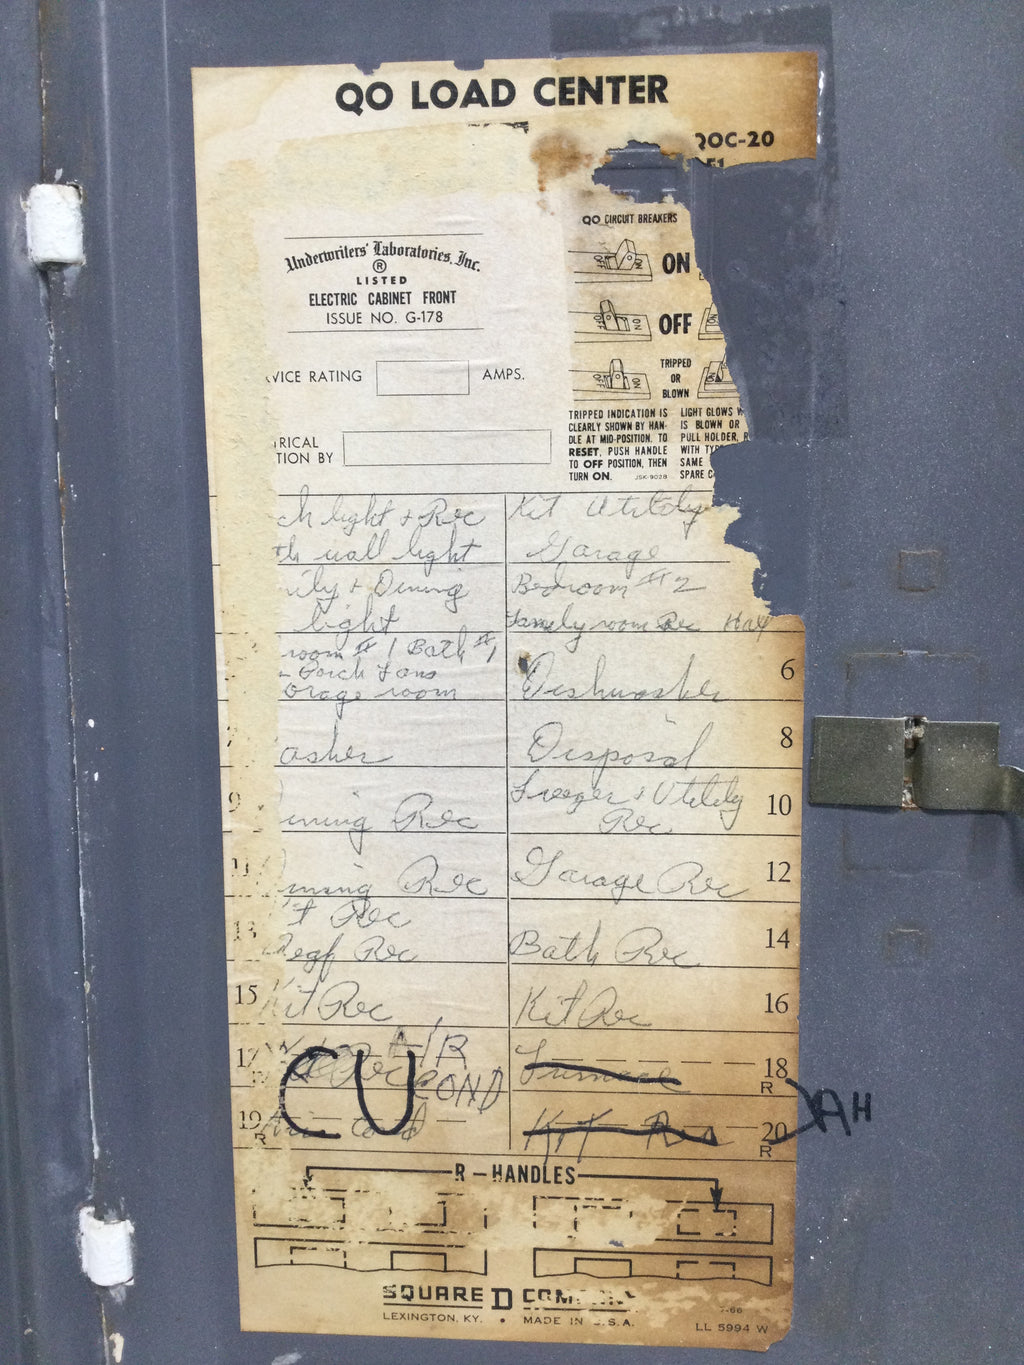 QO LOAD CENTER
QOC-20
QO CIRCUIT BREAKERS
Underwriters' Laboratories, Inc.
®
LISTED
ELECTRIC CABINET FRONT
ISSUE NO. G-178
OFF NO ON
OFF NO OFF
OFF NO TRIPPED
OR
BLOWN
VICE RATING AMPS.
RICAL
TION BY
TRIPPED INDICATION IS
CLEARLY SHOWN BY HAN-
DLE AT MID-POSITION. TO
RESET, PUSH HANDLE
TO OFF POSITION, THEN
TURN ON. JSK-9028
LIGHT GLOWS
IS BLOWN OR
PULL HOLDER,
WITH
SAME
SPARE
ch light + Rec
th wall light
Kit Utility
Garage
ily + Dining
light
Bedroom #2
Family room Rec Hall
room #1 Bath #1
Porch Fans
orage room
Dishwasher 6
7 asher
Disposal 8
9 ining Rec
Freezer + Utility
Rec 10
11 ining Rec
Garage Rec 12
13 it Rec
Refg Rec
Bath Rec 14
15 Kit Rec
Kit Rec 16
17 AIR
COND
R
CU
Furnace 18
R
19
R
Air Cond
Kit Rec 20
R
AH
R-HANDLES
SQUARE D COMPANY
LEXINGTON, KY. • MADE IN U.S.A.
LL 5994 W